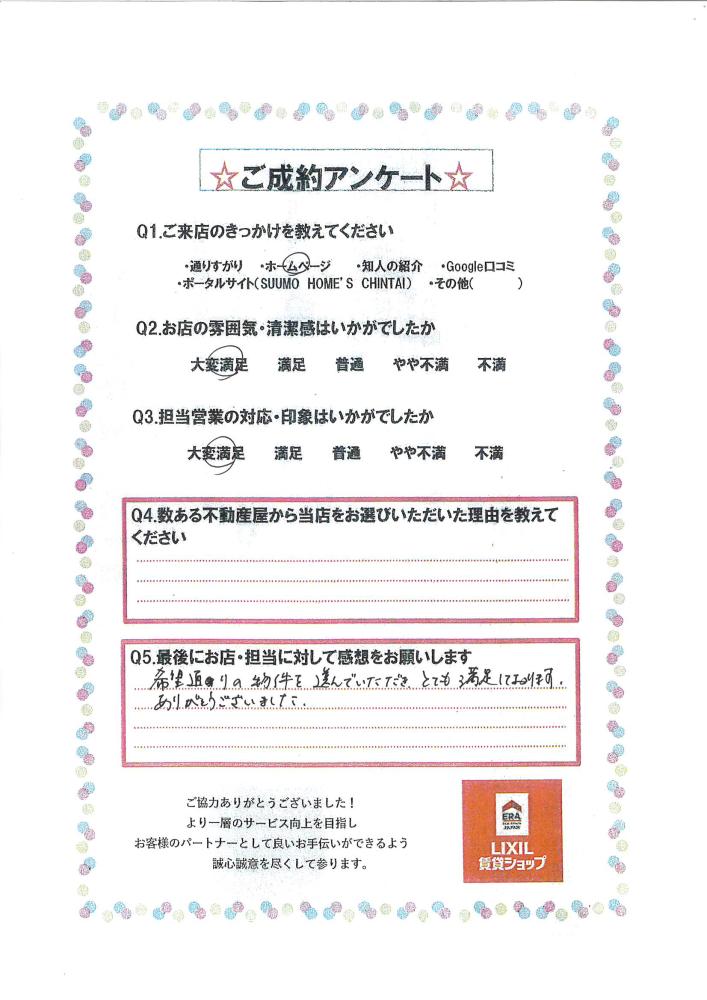 ☆ご成約アンケート☆
Q1.ご来店のきっかけを教えてください
・通りすがり ・ホームページ ・知人の紹介 ・Google口コミ
・ポータルサイト(SUUMO HOME'S CHINTAI) ・その他( )
Q2.お店の雰囲気・清潔感はいかがでしたか
大変満足 満足 普通 やや不満 不満
Q3.担当営業の対応・印象はいかがでしたか
大変満足 満足 普通 やや不満 不満
Q4.数ある不動産屋から当店をお選びいただいた理由を教えて
ください
Q5.最後にお店・担当に対して感想をお願いします
希望通りの物件を選んでいただき、とても満足しております。
ありがとうございました。
ご協力ありがとうございました！
より一層のサービス向上を目指し
お客様のパートナーとして良いお手伝いができるよう
誠心誠意を尽くして参ります。
ERA
JAPAN
LIXIL
賃貸ショップ